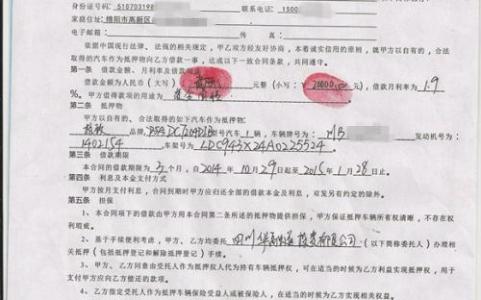 身份证号码: 51070319 联系电话: 1500
家庭住址: 绵阳市高新
电子邮箱: 传真:
依据中国现行法律、法规的相关规定，甲乙双方经友好协商，本着诚实信用的原则，就甲方以自有的、合法
取得的汽车作为抵押物向乙方借款一事，达成以下一致合同条款，共同遵守。
第一条 借款金额、月利率及借款用途
借款金额为人民币（大写） 元整（小写：¥ 元），借款月利率为1.9
%。甲方借得款项的用途为
第二条 抵押物
甲方以自有的、合法取得的如下汽车作为抵押物:
品牌，型号汽车1辆，车牌号为: 川B 发动机号为:
1402154 车架号为 LDC943X24A0225524
第三条 借款期限
本合同的借款期为3个月，自2014年10月29日起至2015年1月28日止。
第四条 利息及本金支付方式
甲方按月支付利息，合同到期时甲方应归还全部的借款本金及利息，双发另有约定的除外。
第五条 担保
1、本合同项下的借款由甲方用本合同第二条所述的抵押物提供担保，甲方保证抵押车辆所有权清晰，不存在权
利瑕疵。
2、基于手续便利考虑，甲方、乙方均委托 四川 投资有限公司（以下简称委托人）办理相
关抵押（包括抵押登记和解除抵押登记）手续。
3、甲方、乙方同意由受托人作为抵押权人代为持有车辆抵押权，可在适当的时候为乙方利益实现抵押权，用于
支付甲方应向乙方偿还的款项。
4、乙方指定受托人作为抵押车辆保险受益人或被保险人，在适当的时候为乙方利益实现相关权